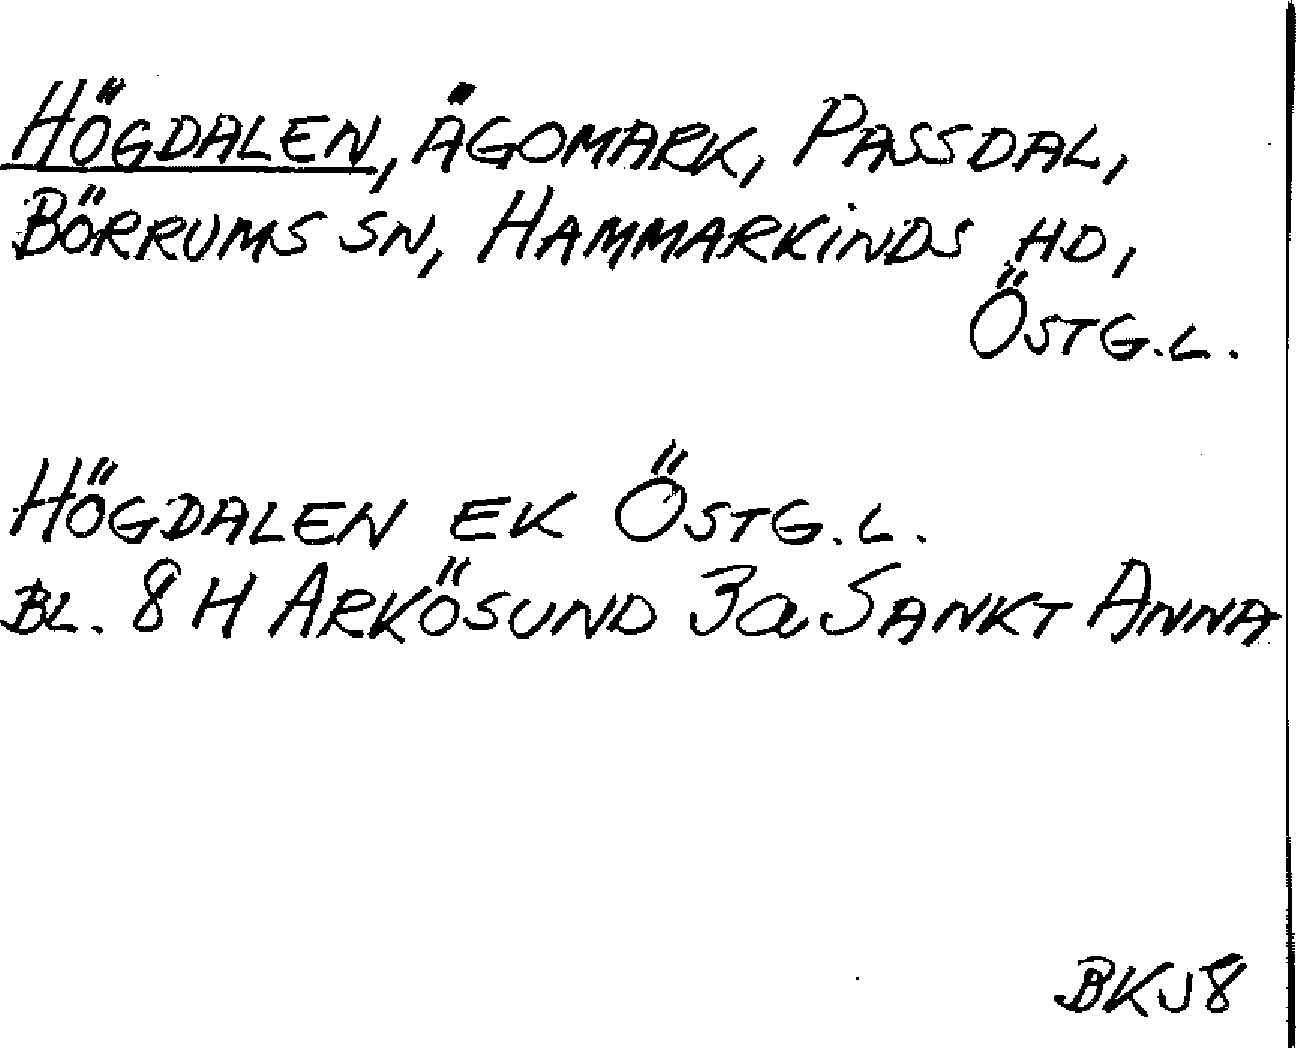 HÖGDALEN, ÄGOMARK, PASSDAL,
BÖRRUMS SN, HAMMARKINDS HD,
ÖSTG.L.
HÖGDALEN EK ÖSTG.L.
BL. 8 H ARKÖSUND 3a SANKT ANNA
BKJ8